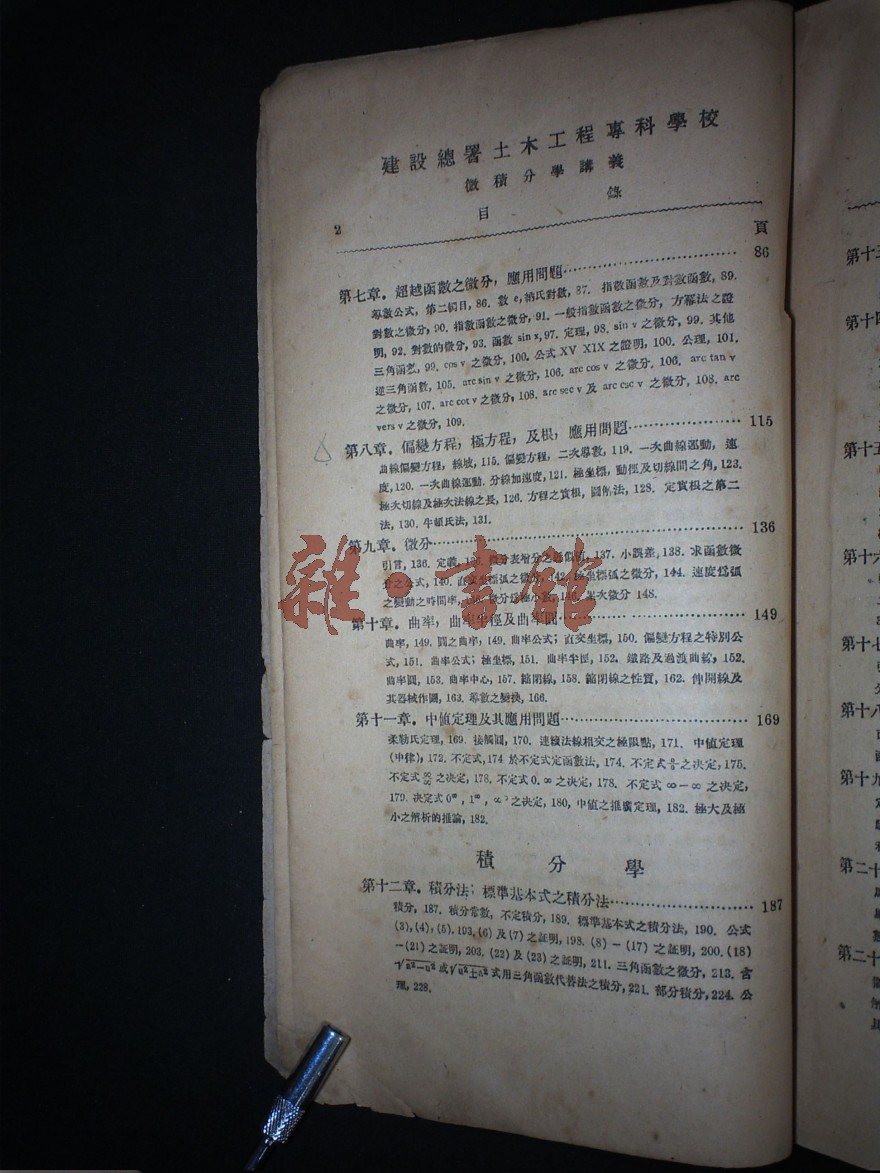 建設總署土木工程專科學校
微積分學講義
2 目錄
頁
第七章. 超越函數之微分, 應用問題 86
導數公式, 第二綱目, 86. 數 e, 納氏對數, 87. 指數函數及對數函數, 89.
對數之微分, 90. 指數函數之微分, 91. 一般指數函數之微分, 方冪法之證
明, 92. 對數的微分, 93. 函數 sin x, 97. 定理, 98. sin v 之微分, 99. 其他
三角函數, 99. cos v 之微分, 100. 公式 XV XIX 之證明, 100. 公理, 101.
逆三角函數, 105. arc sin v 之微分, 106. arc cos v 之微分, 106. arc tan v
之微分, 107. arc cot v 之微分, 108. arc sec v 及 arc csc v 之微分, 108. arc
vers v 之微分, 109.
第八章. 偏變方程, 極方程, 及根, 應用問題 115
曲線偏變方程, 線坡, 115. 偏變方程, 二次導數, 119. 一次曲線運動, 速
度, 120. 一次曲線運動. 分線加速度, 121. 極坐標, 動徑及切線間之角, 123.
極次切線及極次法線之長, 126. 方程之實根, 圖解法, 128. 定實根之第二
法, 130. 牛頓氏法, 131.
第九章. 微分 136
引言, 136. 定義, 136. 微分表增分之近似值, 137. 小誤差, 138. 求函數微
分之公式, 140. 直交坐標弧之微分, 142. 極坐標弧之微分, 144. 速度爲弧
之變動之時間率, 微分爲極小數, 累次微分 148.
第十章. 曲率, 曲率半徑及曲率圓 149
曲率, 149. 圓之曲率, 149. 曲率公式; 直交坐標, 150. 偏變方程之特別公
式, 151. 曲率公式; 極坐標, 151. 曲率半徑, 152. 鐵路及過渡曲線, 152.
曲率圓, 153. 曲率中心, 157. 縮閉線, 158. 縮閉線之性質, 162. 伸開線及
其器械作圖, 163. 導數之變換, 166.
第十一章. 中値定理及其應用問題 169
柔勒氏定理, 169. 接觸圓, 170. 連續法線相交之極限點, 171. 中値定理
(中律), 172. 不定式, 174 於不定式定函數法, 174. 不定式 0/0 之決定, 175.
不定式 ∞/∞ 之決定, 178. 不定式 0.∞ 之決定, 178. 不定式 ∞−∞ 之決定,
179. 決定式 0⁰, 1^∞, ∞⁰ 之決定, 180, 中値之推廣定理, 182. 極大及極
小之解析的推論, 182.
積分學
第十二章. 積分法; 標準基本式之積分法 187
積分, 187. 積分常數, 不定積分, 189. 標準基本式之積分法, 190. 公式
(3), (4), (5), 193. (6) 及 (7) 之証明, 198. (8) − (17) 之証明, 200. (18)
−(21) 之証明, 203. (22) 及 (23) 之証明, 211. 三角函數之微分, 213. 含
√a²−u² 或 √u²±a² 式用三角函數代替法之積分, 221. 部分積分, 224. 公
理, 228.
雜·書館
第十
第十
第十五
第十六
第十七
第十八
第十九
第二十
第二十